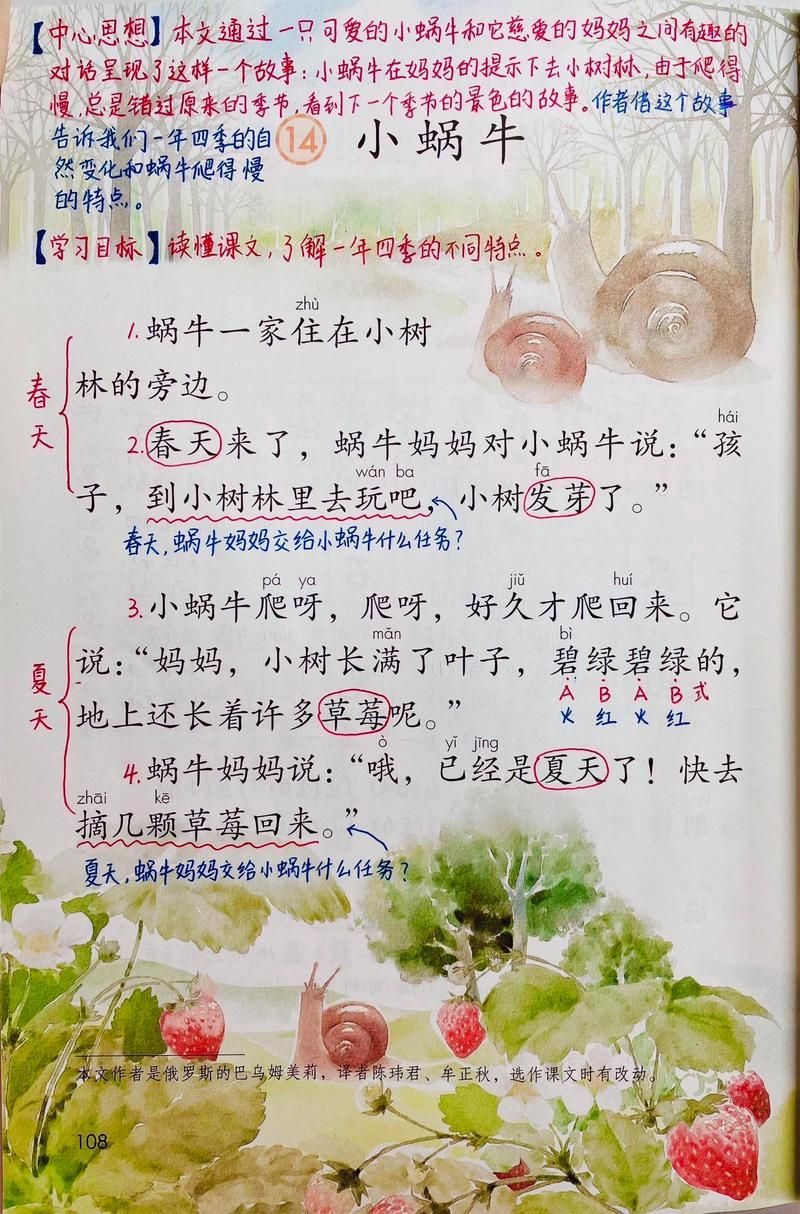 【中心思想】本文通过一只可爱的小蜗牛和它慈爱的妈妈之间有趣的
对话呈现了这样一个故事：小蜗牛在妈妈的提示下去小树林，由于爬得
慢，总是错过原来的季节，看到下一个季节的景色的故事。作者借这个故事
告诉我们一年四季的自
然变化和蜗牛爬得慢
的特点。
14 小蜗牛
【学习目标】读懂课文，了解一年四季的不同特点。
zhù
1.蜗牛一家住在小树
林的旁边。
春天
hái
2.春天来了，蜗牛妈妈对小蜗牛说：“孩
wán ba fā
子，到小树林里去玩吧，小树发芽了。”
春天，蜗牛妈妈交给小蜗牛什么任务？
pá ya jiǔ huí
3.小蜗牛爬呀，爬呀，好久才爬回来。它
mǎn bì
说：“妈妈，小树长满了叶子，碧绿碧绿的，
A B A B 式
夏天
地上还长着许多草莓呢。”
火 红 火 红
ò yǐ jīng
4.蜗牛妈妈说：“哦，已经是夏天了！快去
zhāi kē
摘几颗草莓回来。”
夏天，蜗牛妈妈交给小蜗牛什么任务？
本文作者是俄罗斯的巴乌姆美莉，译者陈玮君、牟正秋，选作课文时有改动。
108